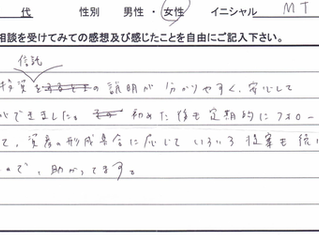 代 性別 男性・女性 イニシャル MT
相談を受けてみての感想及び感じたことを自由にご記入下さい。
信託
投資 の説明が分かりやすく、安心して
ができました。 初めた後も定期的にフォロー
て、資産の形成具合に応じていろいろ提案も
ので、助かってます。